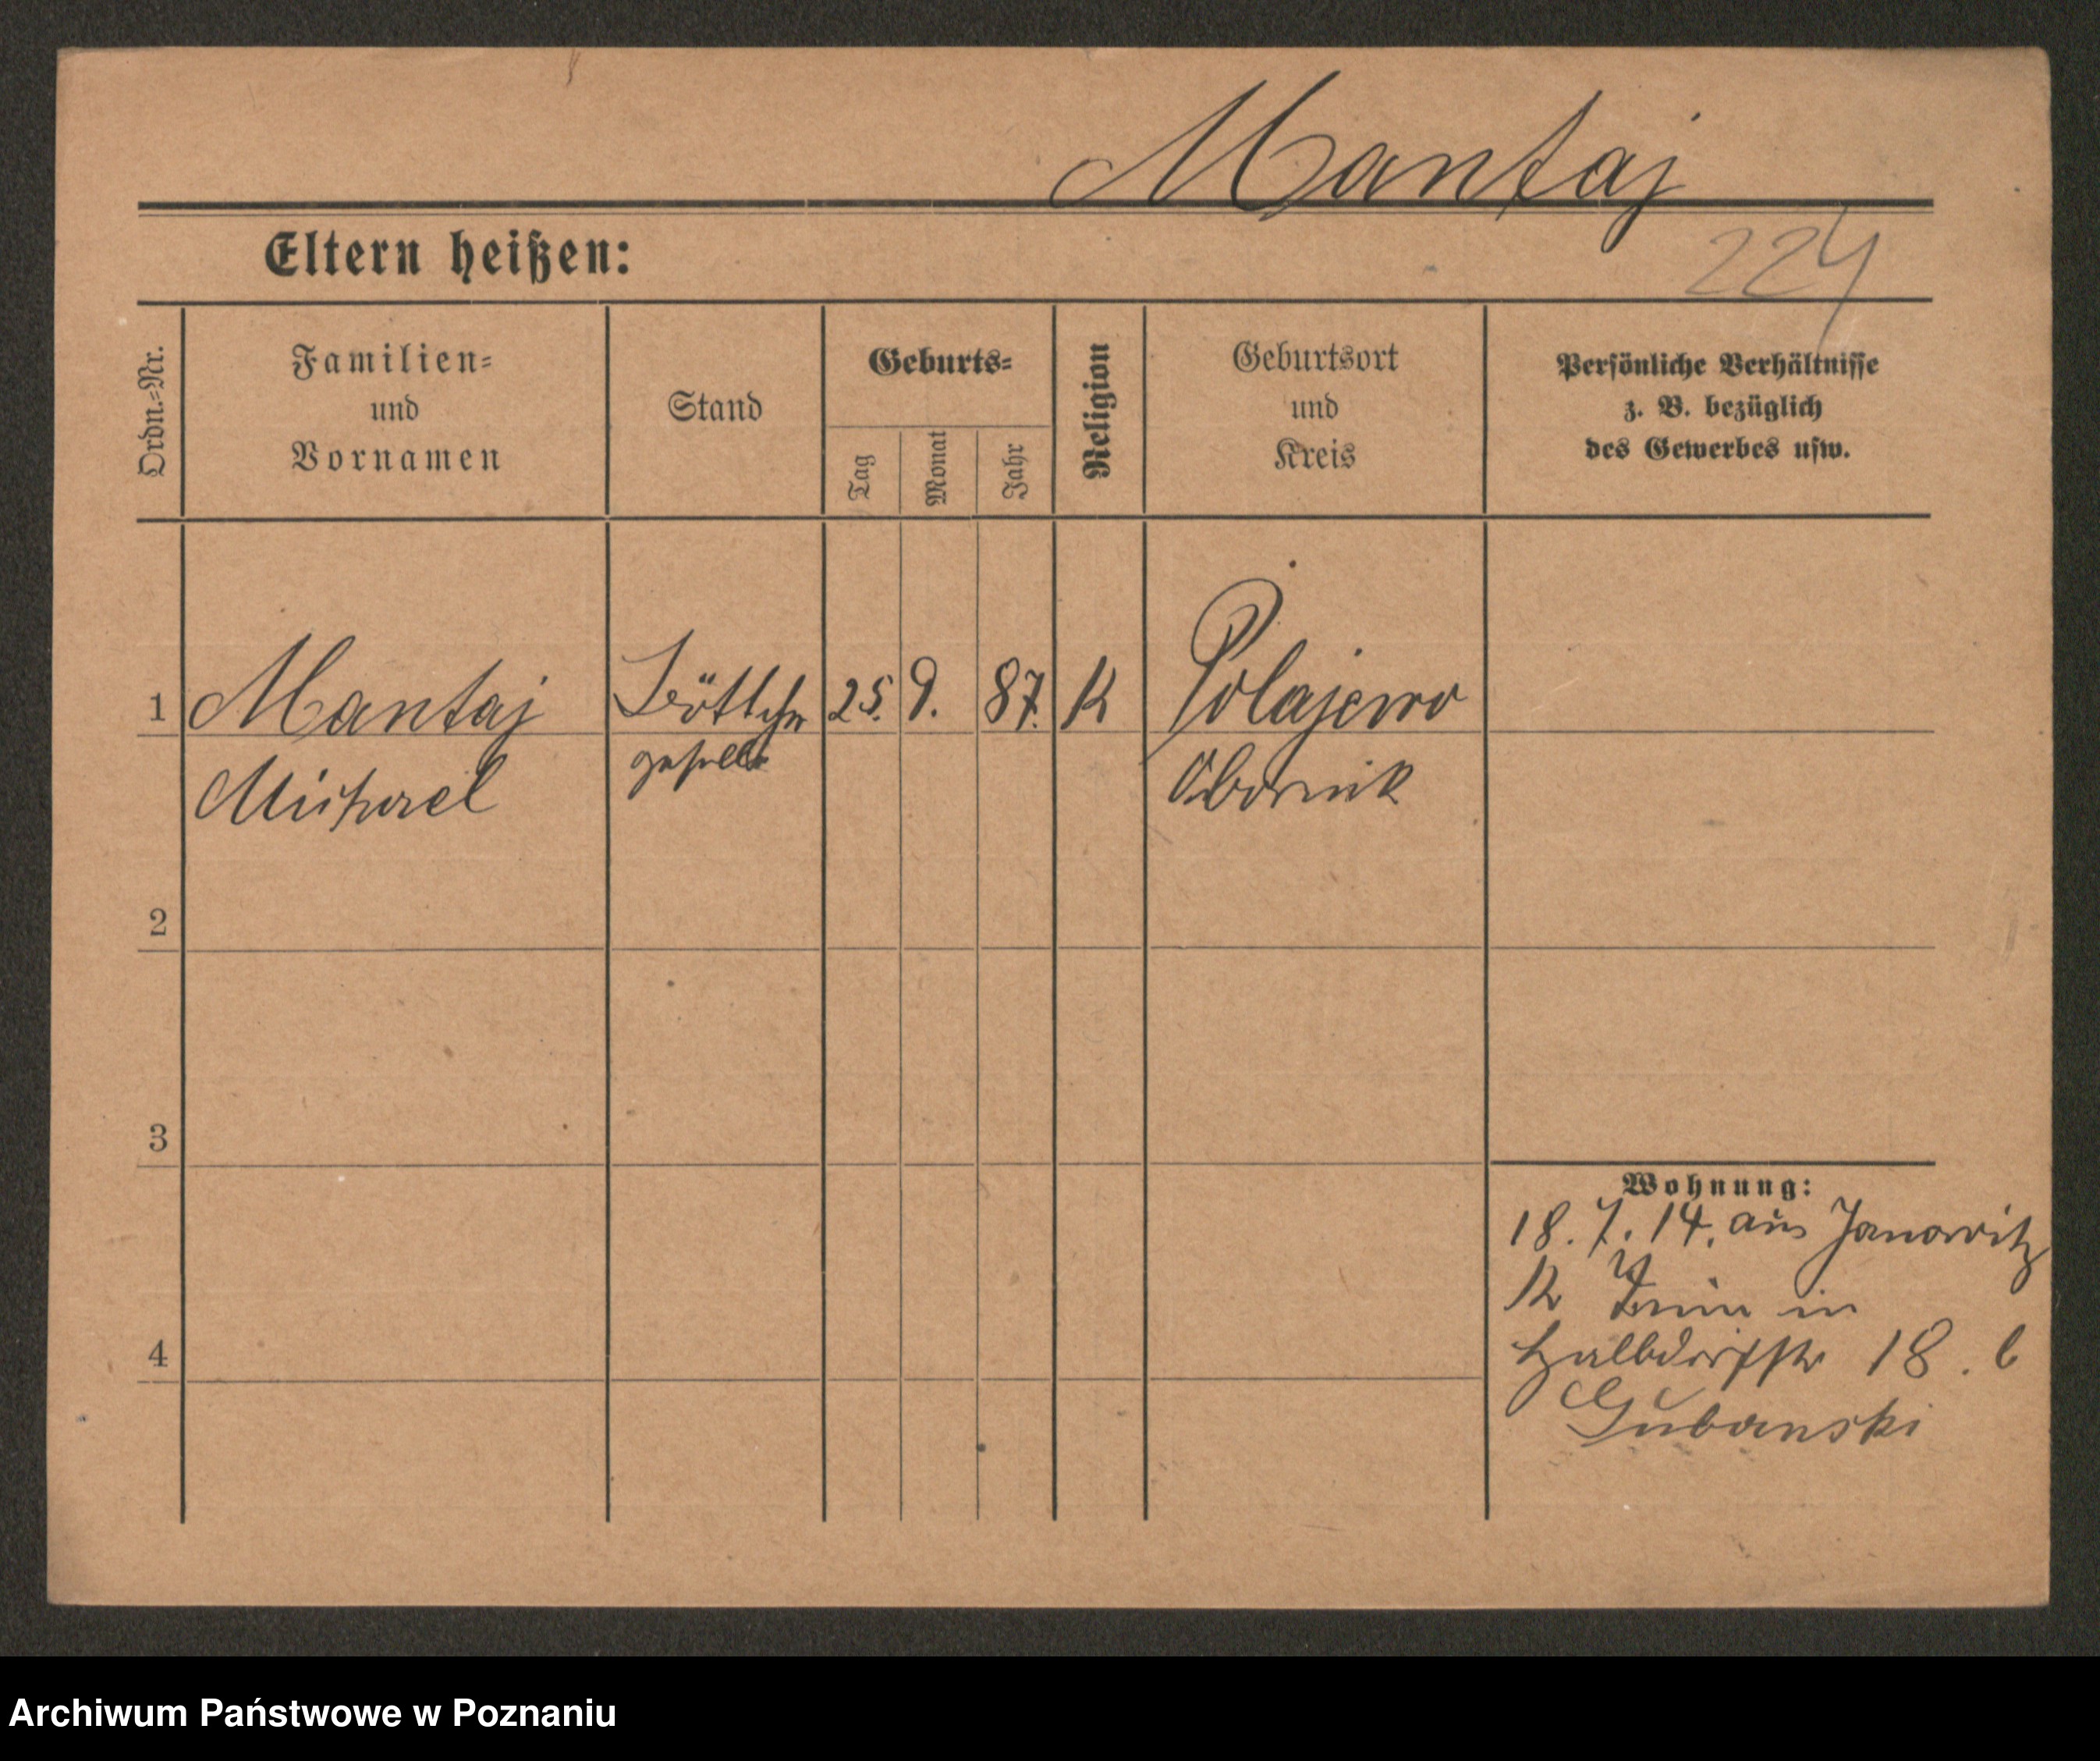 Mantaj
224
Eltern heißen:
Ordn.-Nr.
Familien- und Vornamen
Stand
Geburts-
Tag
Monat
Jahr
Religion
Geburtsort und Kreis
Persönliche Verhältnisse
z. B. bezüglich
des Gewerbes usw.
1 Mantaj Böttcher 25. 9. 87. K Polajewo
Michael geselle Obornik
2
3
Wohnung:
18. 7. 14. aus Janowitz
K Znin in
Halbdorfstr 18. b
4
Gubanski
Archiwum Państwowe w Poznaniu